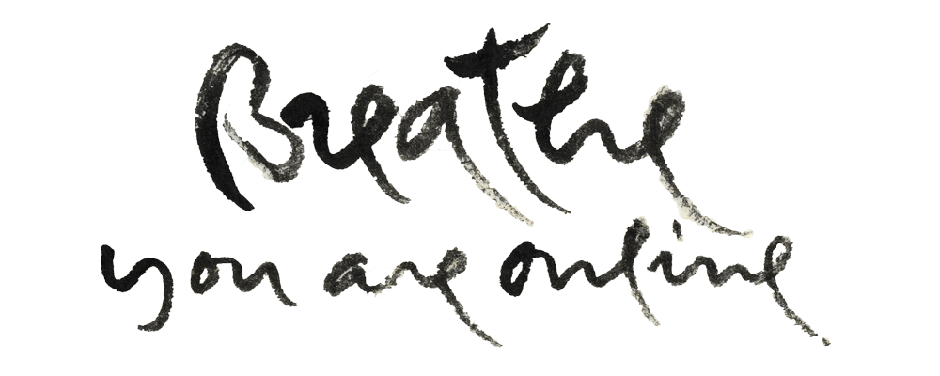 Breathe
you are online